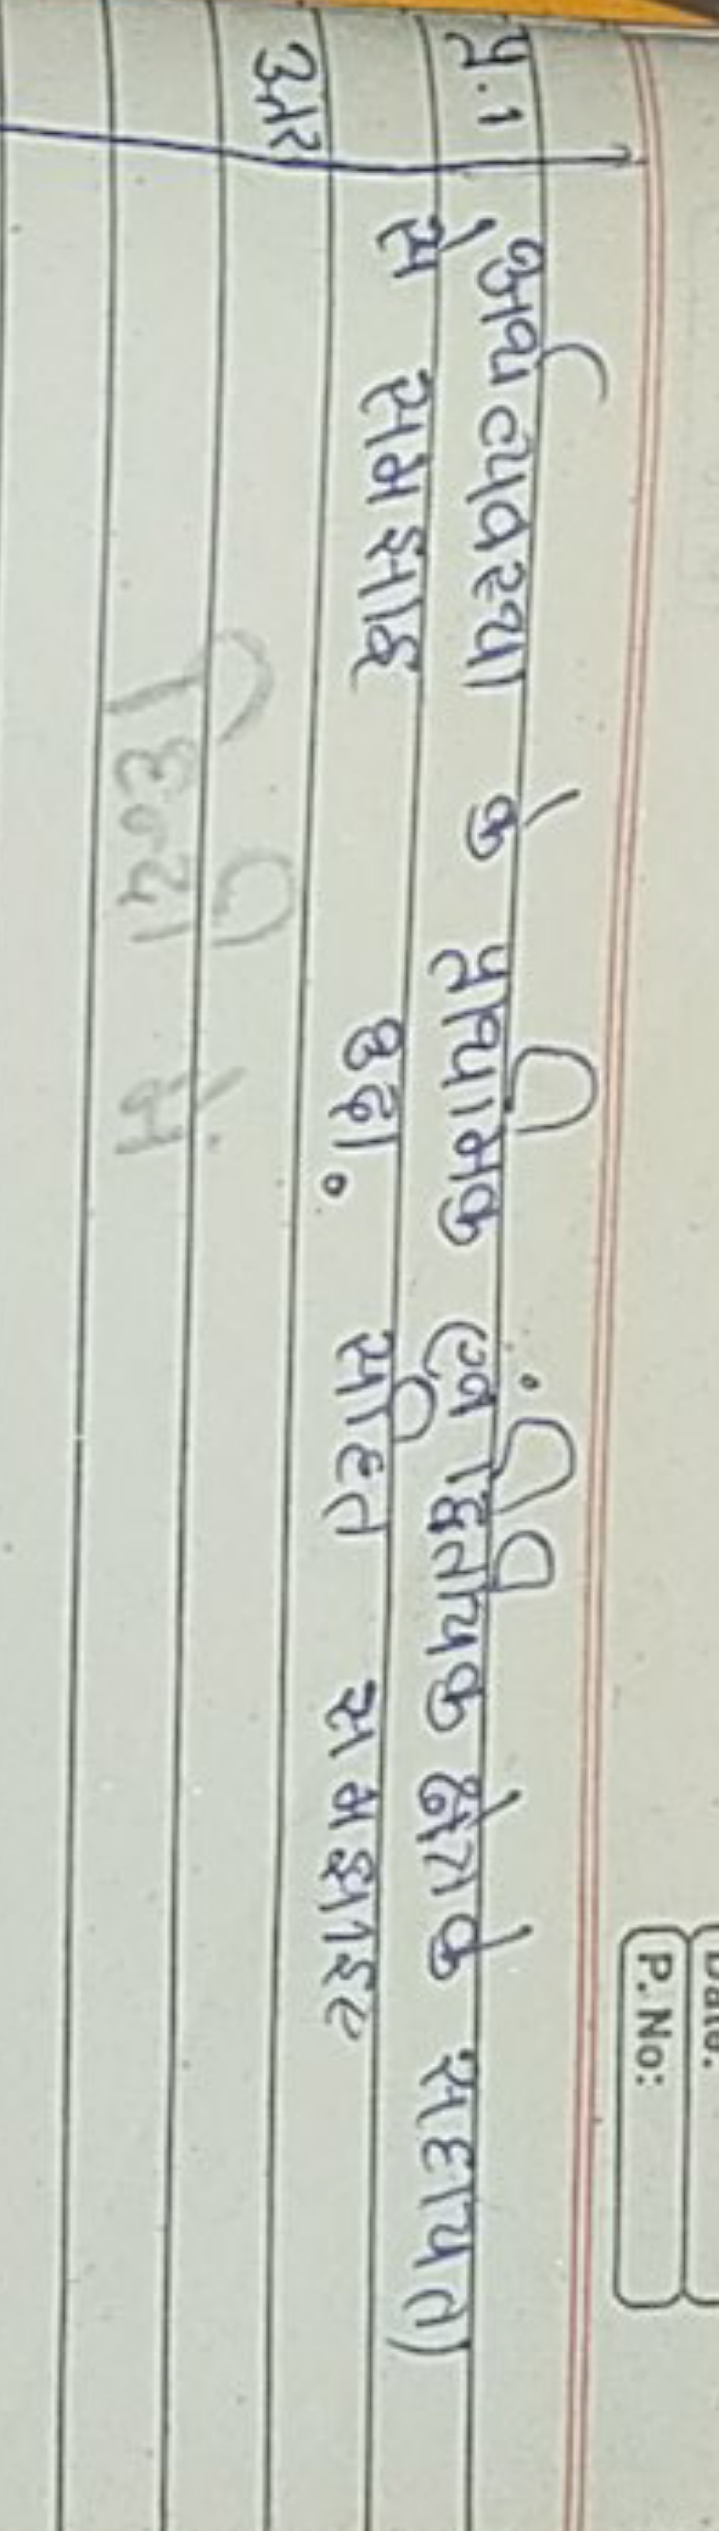 प्र.1 अर्थव्यवस्था के प्राथमिक एवं द्वितीयक क्षेत्र के सहायता
से समझाइ सहित समझाइए
उत्तर
हिन्दी में
P.No: